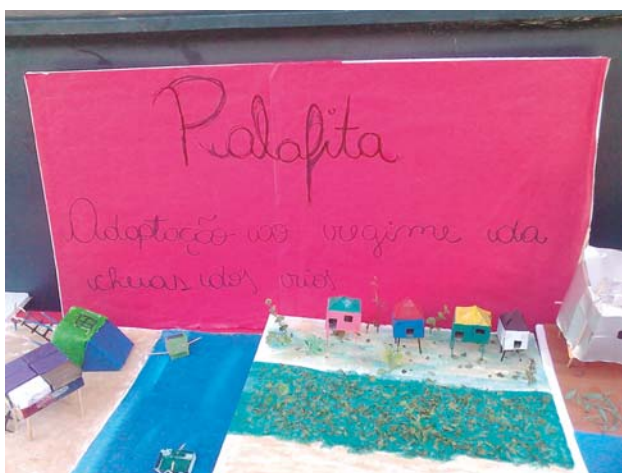 Palafita
Adaptação ao regime da
cheias dos rios